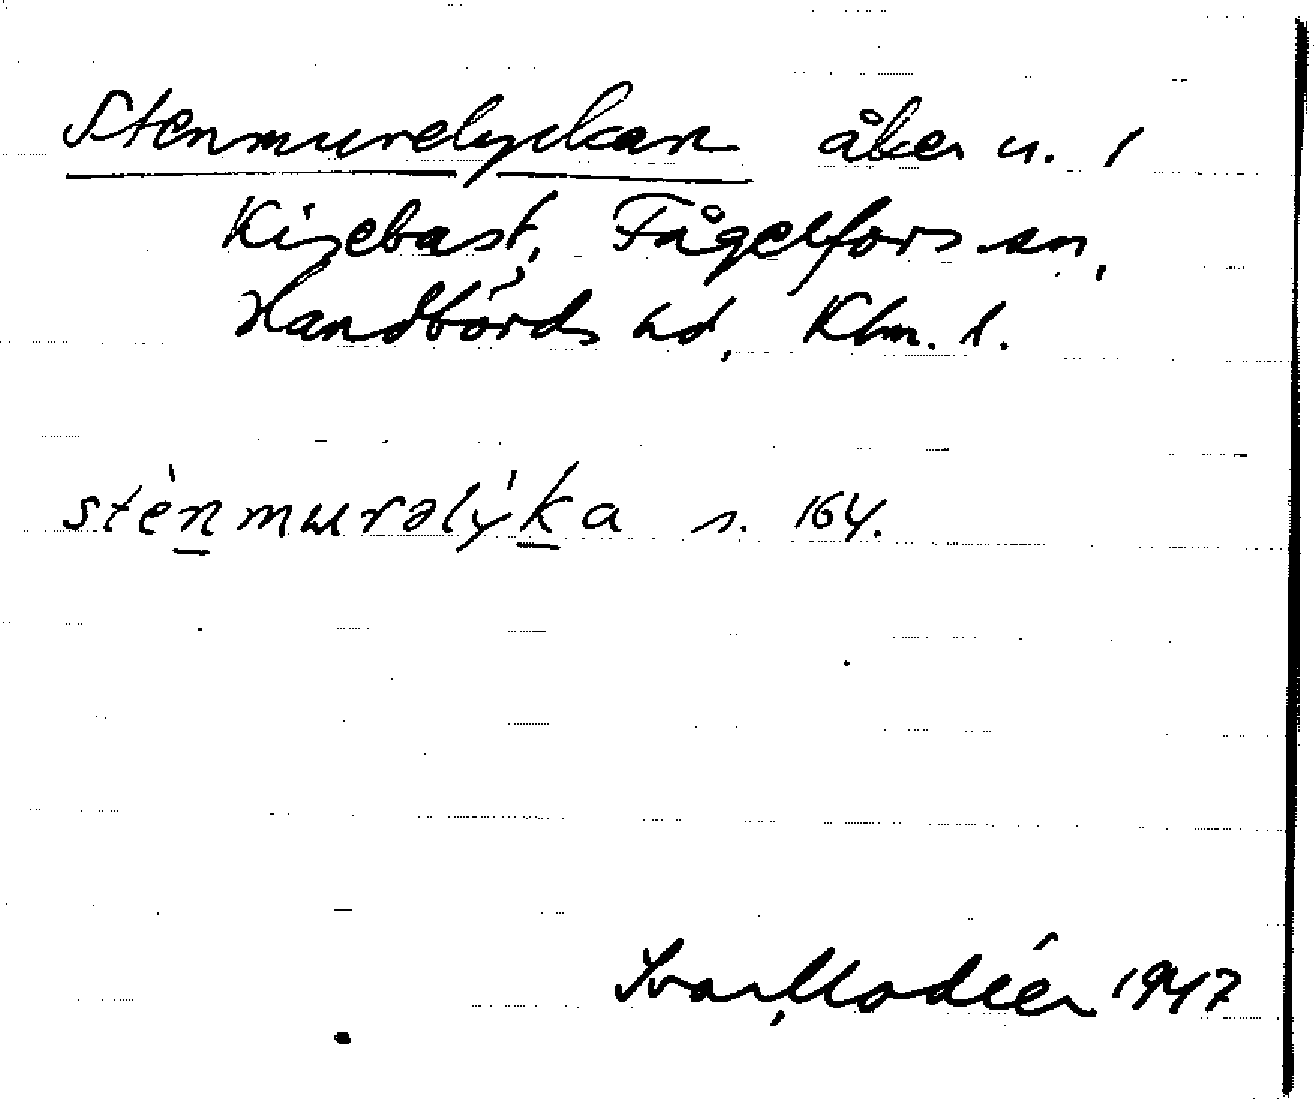 Stenmurelyckan åker u. 1
Kisebast, Fågelfors sn,
Handbörds hd, Klm. l.
sténmurəlýka s. 164.
Ivar Modéer 1947